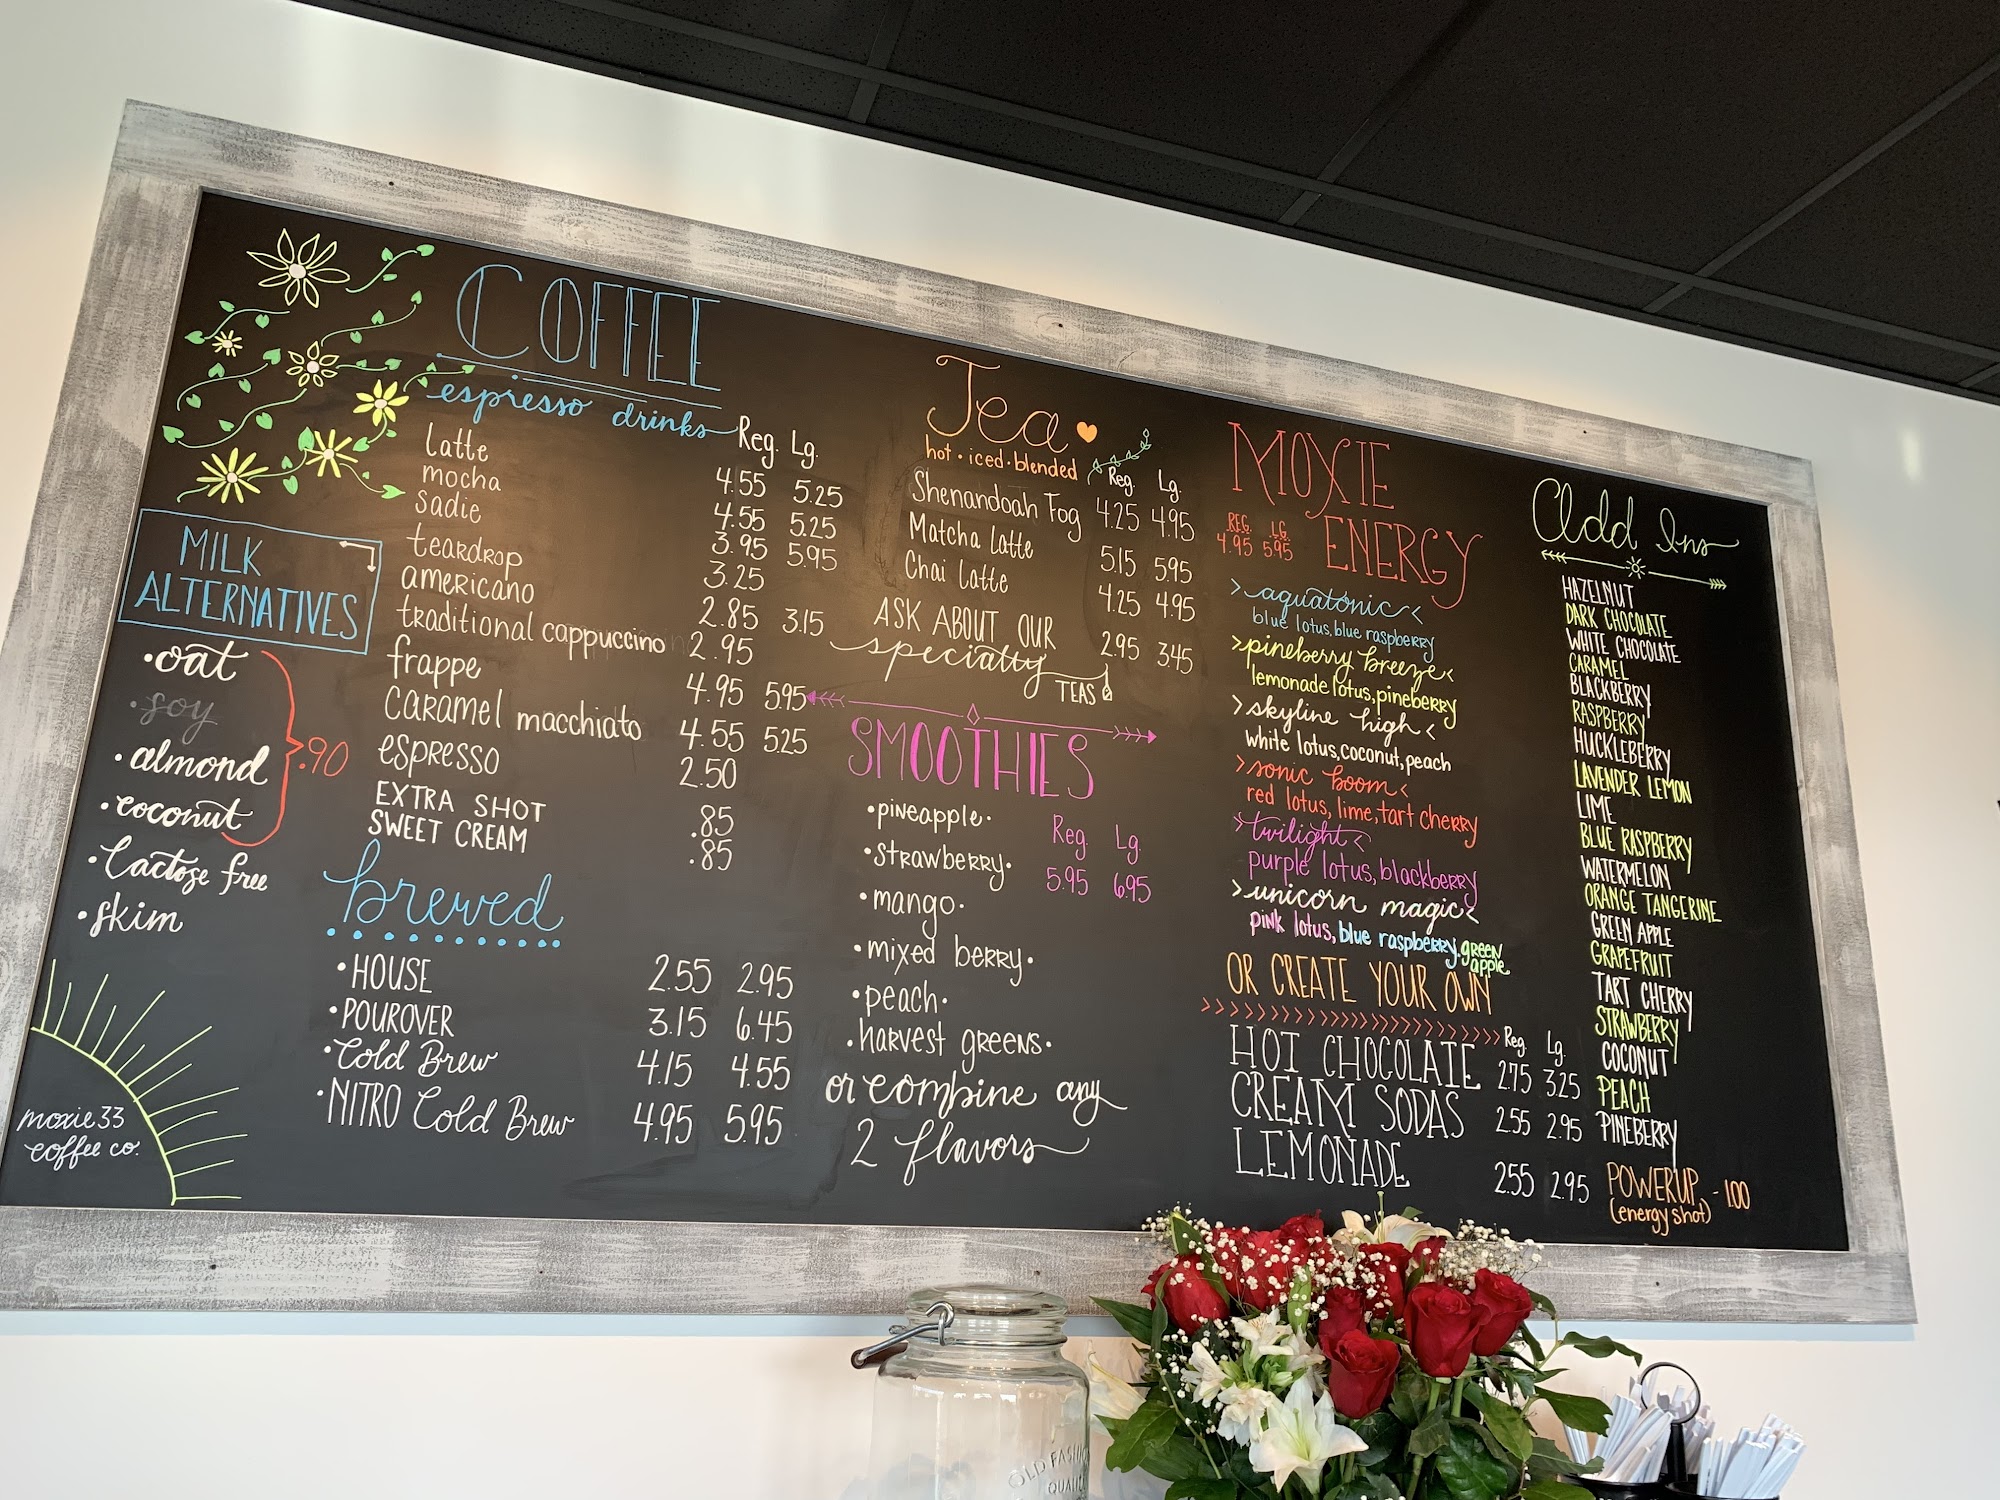 COFFEE
espresso drinks Reg. Lg.
latte 4.55 5.25
mocha 4.55 5.25
sadie 3.95 5.95
teardrop 3.25
americano 2.85 3.15
traditional cappuccino 2.95
frappe 4.95 5.95
caramel macchiato 4.55 5.25
espresso 2.50
EXTRA SHOT .85
SWEET CREAM .85
MILK
ALTERNATIVES
•oat
•soy
•almond
•coconut
.90
•Lactose free
•skim
brewed
•HOUSE 2.55 2.95
•POUROVER 3.15 6.45
•Cold Brew 4.15 4.55
•NITRO Cold Brew 4.95 5.95
moxie33
coffee co.
Tea
hot•iced•blended
Reg. Lg.
Shenandoah Fog 4.25 4.95
Matcha Latte 5.15 5.95
Chai Latte 4.25 4.95
ASK ABOUT OUR
specialty
TEAS
2.95 3.45
SMOOTHIES
Reg. Lg.
5.95 6.95
•pineapple•
•strawberry•
•mango•
•mixed berry•
•peach•
•harvest greens•
or combine any
2 flavors
MOXIE
ENERGY
REG. LG.
4.95 5.95
>aquatonic<
blue lotus, blue raspberry
>pineberry breeze<
lemonade lotus, pineberry
>skyline high<
white lotus, coconut, peach
>sonic boom<
red lotus, lime, tart cherry
>twilight<
purple lotus, blackberry
>unicorn magic<
pink lotus, blue raspberry, green
apple
OR CREATE YOUR OWN
Reg. Lg.
HOT CHOCOLATE 2.75 3.25
CREAM SODAS 2.55 2.95
LEMONADE 2.55 2.95
Add Ins
HAZELNUT
DARK CHOCOLATE
WHITE CHOCOLATE
CARAMEL
BLACKBERRY
RASPBERRY
HUCKLEBERRY
LAVENDER LEMON
LIME
BLUE RASPBERRY
WATERMELON
ORANGE TANGERINE
GREEN APPLE
GRAPEFRUIT
TART CHERRY
STRAWBERRY
COCONUT
PEACH
PINEBERRY
POWERUP - 1.00
(energy shot)